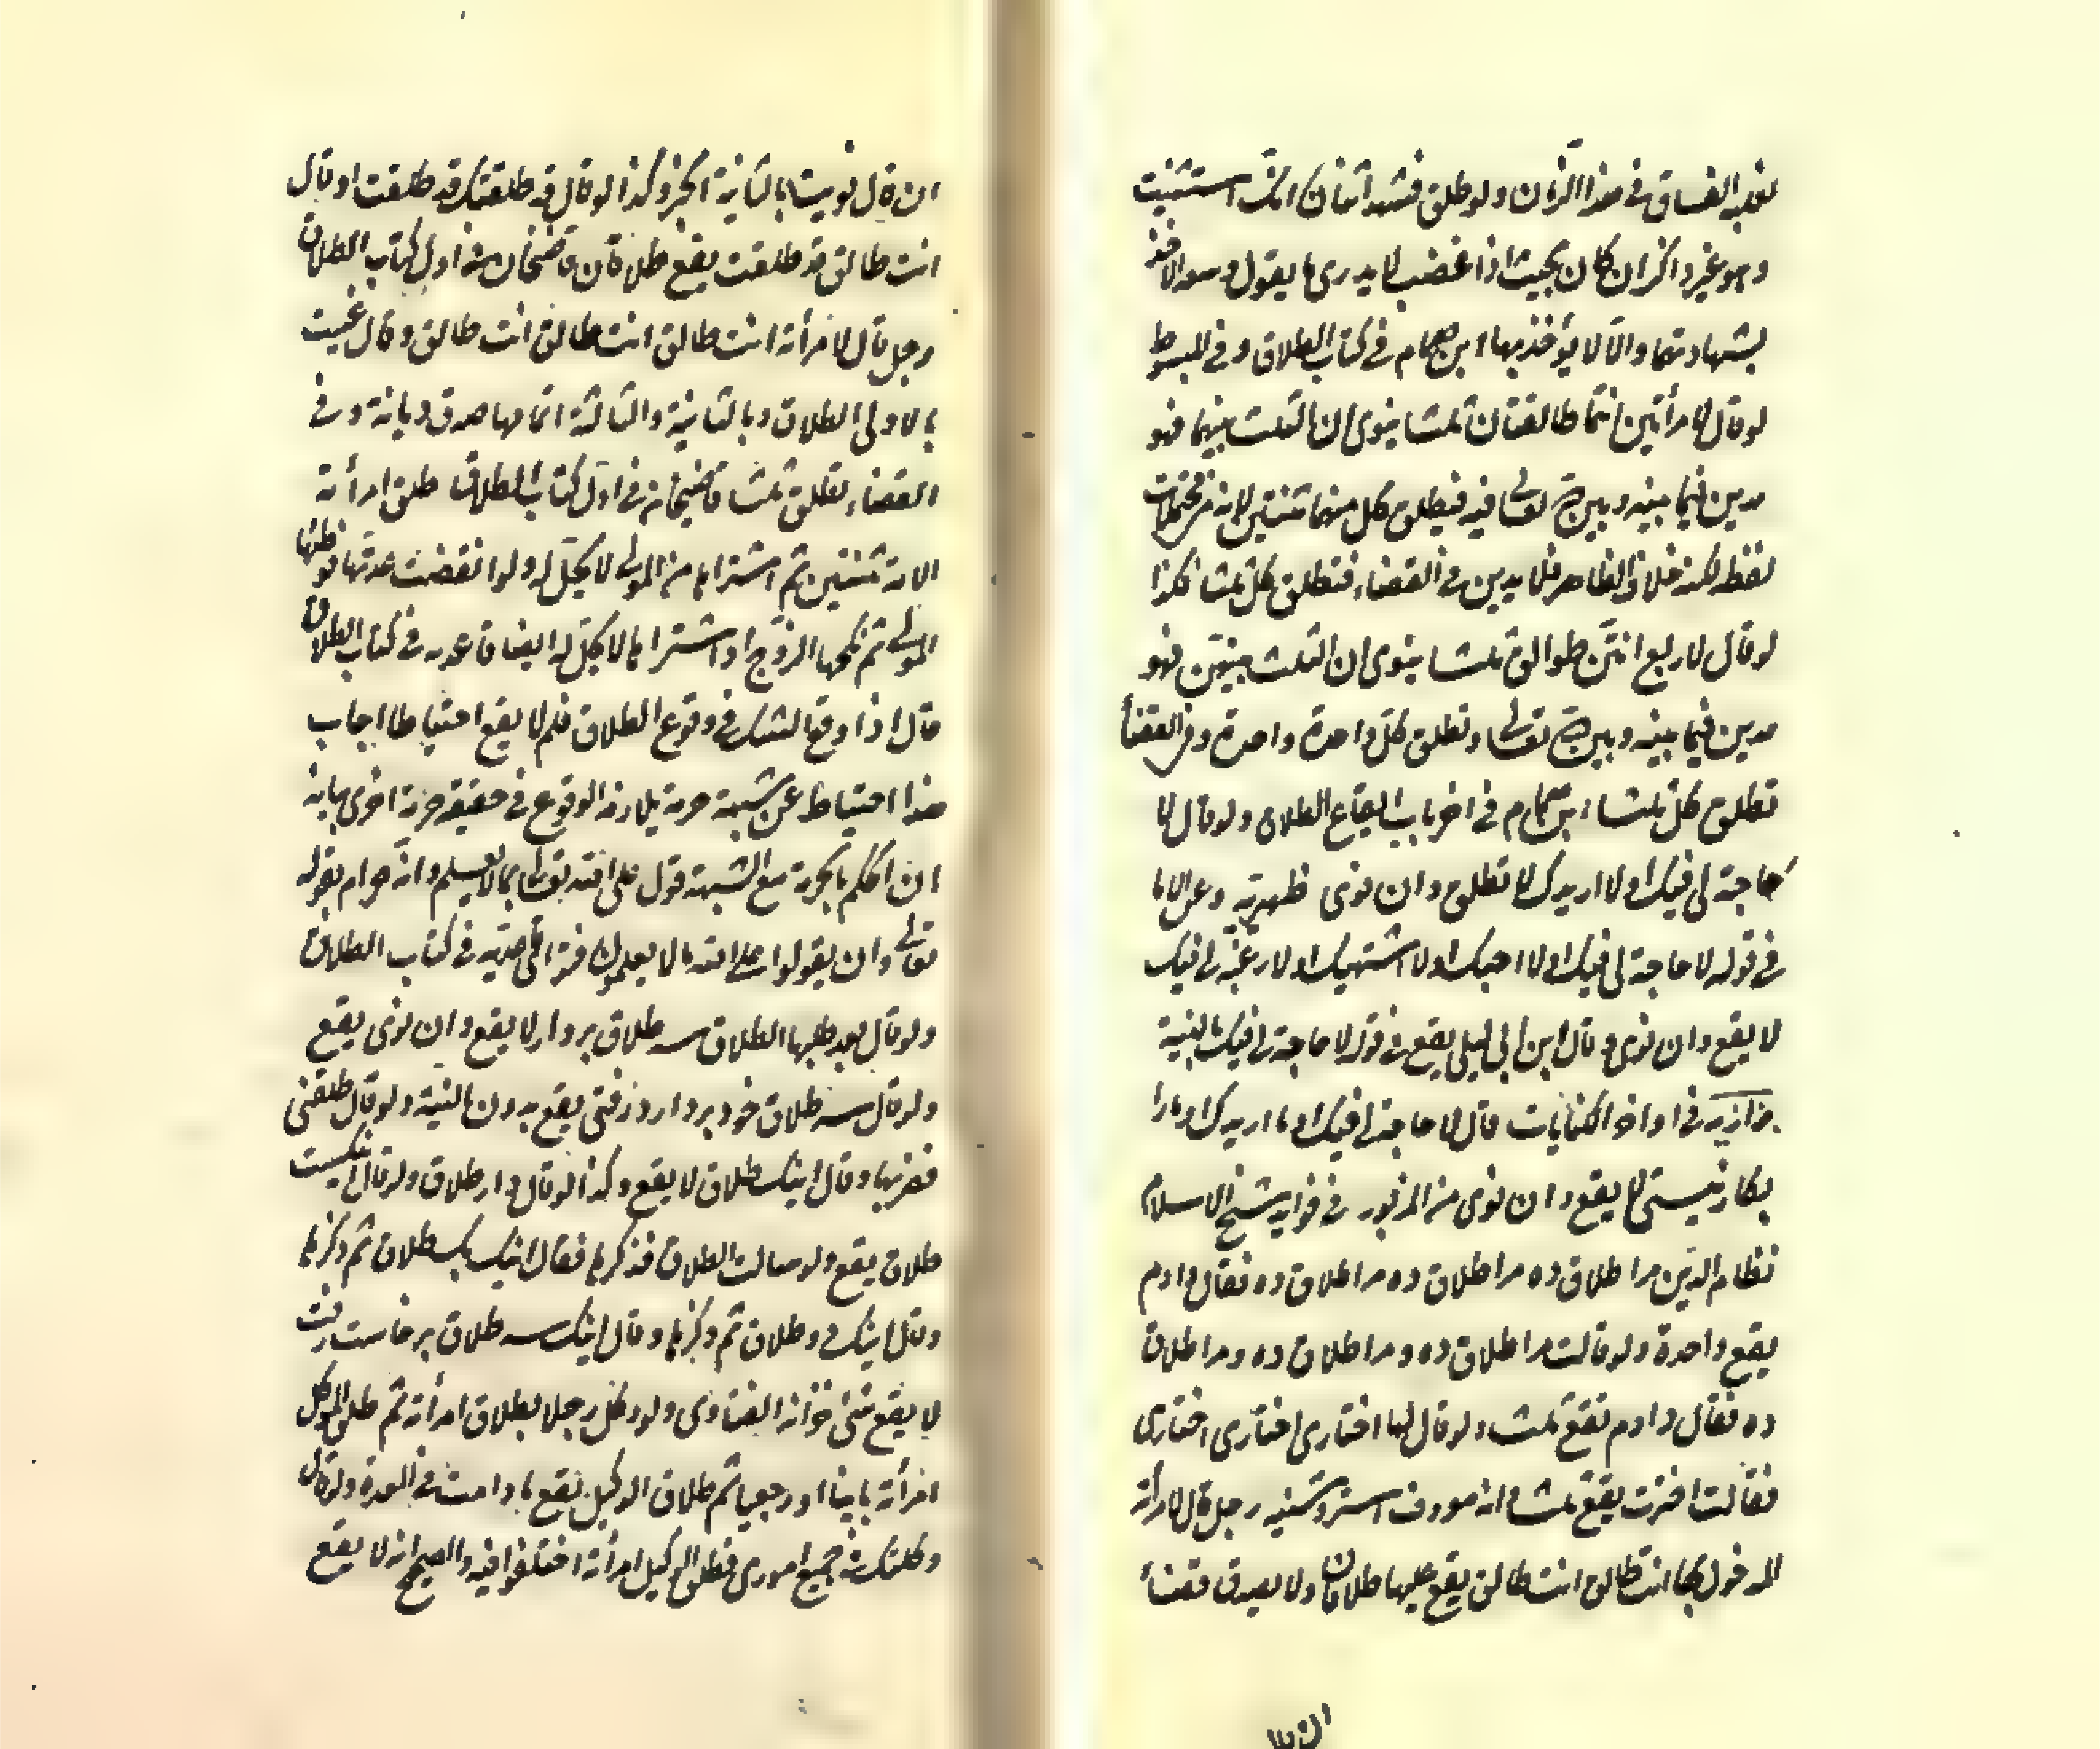 لغلبة الفساق في هذا الزمان ولو طلق فشهد اثنان انك استثنيت
وهو غير ذاكر ان كان بحيث اذا غضب لا يدري ما يقول وسعه الاخذ
بشهادتهما والا لا يؤخذ بها ابن همام في كتاب الطلاق وفي المبسوط
لو قال لامرأتين انتما طالقتان ثلثا ينوى ان الثلث بينهما فهو
مدين فيما بينه وبين الله تعالى فيه فيطلق كل منهما ثنتين لانه من محتملات
لفظه لكنه خلاف الظاهر فلا يدين في القضاء فتطلق كل ثلثا فكذا
لو قال لاربع انتن طوالق ثلثا ينوى ان الثلث بينهن فهو
مدين فيما بينه وبين الله تعالى وتطلق كل واحدة واحدة وفي القضأ
تطلق كل ثلثا ابن همام في اخر باب ايقاع الطلاق ولو قال لا
حاجة لي فيك او لا اريدك لا تطلق وان نوى ظهيرية وعن الاما
في قوله لا حاجة لي فيك او لا احبك او لا اشتهيك او لا رغبة لي فيك
لا يقع وان نوى وقال ابن ابي ليلى يقع في قوله لا حاجة لي فيك بالنية
بزازيه في اواخر الكنايات قال لا حاجة لي فيك او ما اريدك او مارا
بكار نيستي لا يقع وان نوى من المزبور في فوايد شيخ الاسلام
نظام الدين مرا طلاق ده مرا طلاق ده مرا طلاق ده فقال دادم
يقع واحدة ولو قالت مرا طلاق ده ومرا طلاق ده ومرا طلاق
ده فقال دادم تقع ثلث ولو قال لها اختاري اختاري اختاري
فقالت اخترت يقع ثلثا استروشنيه رجل قال لامرأته
المدخول بها انت طالق انت طالق يقع عليها طلاقان ولا يصدق قضأ
ان قال نويت بالثانية الخبر وكذا لو قال قد طلقتك قد طلقت او قال
انت طالق قد طلقت يقع طلاقان قاضيخان في اول كتاب الطلاق
رجل قال لامرأته انت طالق انت طالق انت طالق وقال عنيت
بالاولى الطلاق وبالثانية والثالثة افهامها صدق ديانة وفي
القضاء تطلق ثلثا قاضيخان في اول كتاب الطلاق طلق امرأته
الامة ثنتين ثم اشتراها من المولى لا تحل له ولو انقضت عدتها فوطئها
المولى ثم نكحها الزوج او اشتراها لا تحل له ايضا قاعديه في كتاب الطلاق
قال اذا وقع الشك في وقوع الطلاق فلم لا يقع احتياطا اجاب
هذا احتياط عن شبهة حرمة يلازمه الوقوع في حقيقة حرمة اخرى بيانه
ان الحكم بالحرمة مع الشبهة قول على الله تعالى بما لا يعلم وانه حرام بقوله
تعالى وان تقولوا على الله ما لا تعلمون فتوا في كتاب الطلاق
ولو قال بعد طلبها الطلاق سه طلاق بردار لا يقع وان نوى يقع
ولو قال سه طلاق خود بردار ورفتي يقع بدون النية ولو قال طلقني
فضربها وقال اينك طلاق لا يقع وكذا لو قال دار طلاق ولو قال اينكت
طلاق يقع ولو سالت الطلاق فذكرها فقال اينك يك طلاق ثم ذكرها
وقال اينك دو طلاق ثم ذكرها وقال اينك سه طلاق برخاست رفت
لا يقع شئ خزانة الفتاوى ولو وكل رجلا بطلاق امرأته ثم طلق الموكل
امرأته باينا او رجعيا ثم طلاق الوكيل يقع ما دامت في العدة ولو قال
وكلتك في جميع اموري فطلق الوكيل امرأته اختلفوا فيه والصحيح انه لا يقع